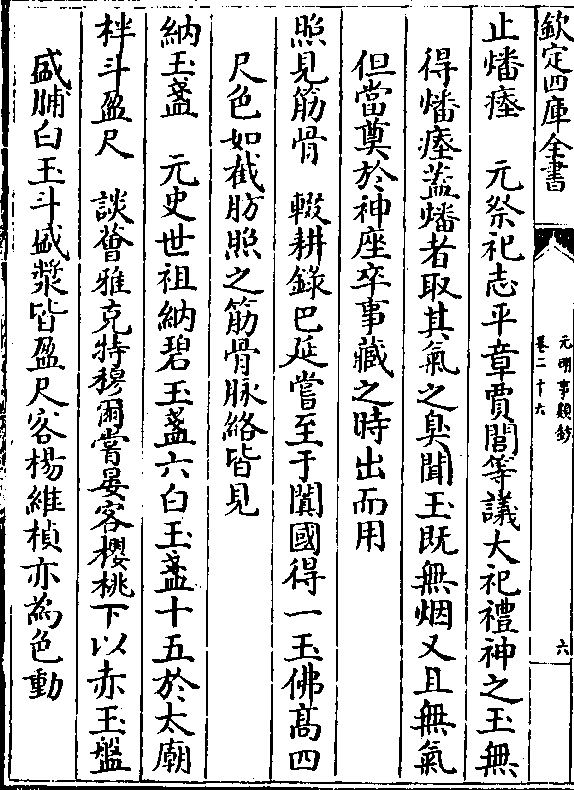 欽定四庫全書
元明事類鈔
卷二十六
六
止燔瘞　元祭祀志平章賈閭等議大祀禮神之玉無
得燔瘞葢燔者取其氣之臭聞玉既無烟又且無氣
但當奠於神座卒事藏之時出而用
照見筋骨　輟耕錄巴延嘗至于闐國得一玉佛髙四
尺色如截肪照之筋骨脉絡皆見
納玉盞　元史世祖納碧玉盞六白玉盞十五於太廟
柈斗盈尺　談薈雅克特穆爾嘗晏客櫻桃下以赤玉盤
盛脯白玉斗盛漿皆盈尺客楊維楨亦為色動